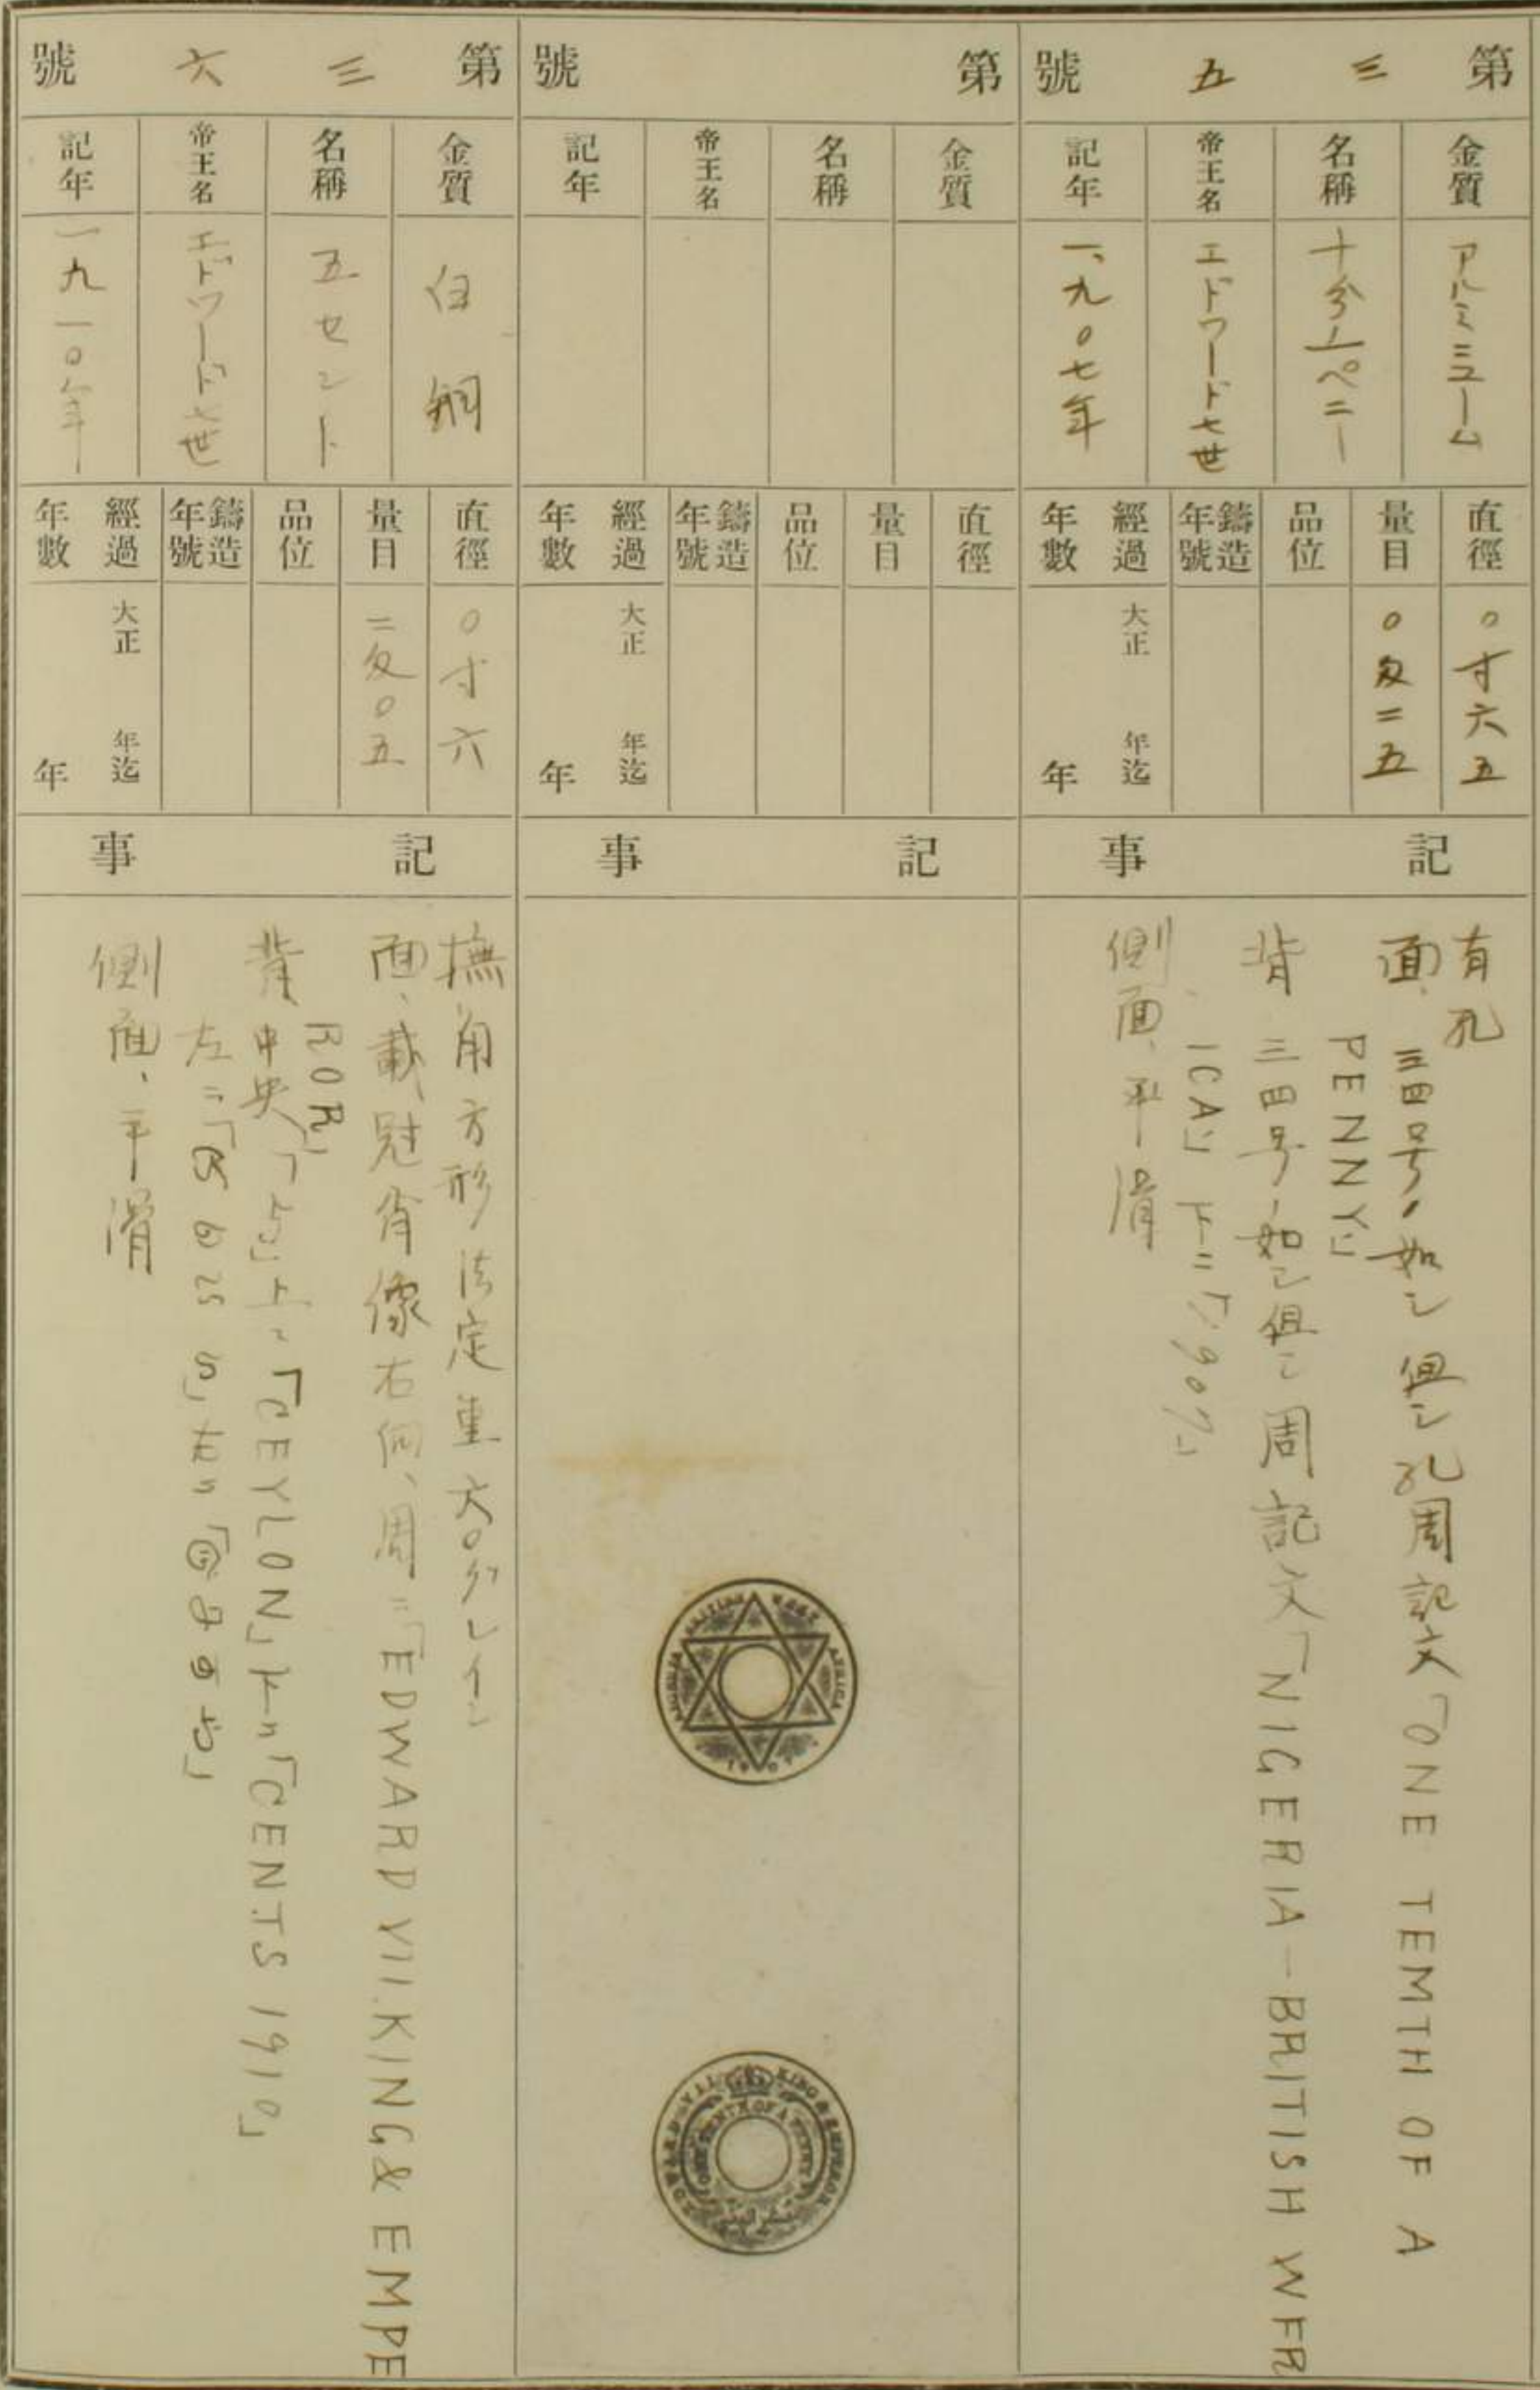 第三五號
金質 アルミニューム
名稱 十分ノ一ペニー
帝王名 エドワード七世
記年 一、九〇七年
直徑 〇寸六五
量目 〇匁二五
品位
鑄造年號
經過年數 大正 年迄 年
記事
有孔
面、三四号ノ如シ但シ孔周記文「ONE TEMTH OF A
PENNY」
背 三四号ノ如シ但シ周記文「NIGERIA-BRITISH WFR
ICA」下ニ「1907」
側面、平滑
第 號
金質
名稱
帝王名
記年
直徑
量目
品位
鑄造年號
經過年數 大正 年迄 年
記事
NIGERIA BRITISH WEST AFRICA
1907
EDWARD VII KING & EMPEROR
ONE TENTH OF A PENNY
第三六號
金質 白銅
名稱 五セント
帝王名 エドワード七世
記年 一九一〇年
直徑 〇寸六
量目 二匁〇五
品位
鑄造年號
經過年數 大正 年迄 年
記事
撫角方形法定重六〇グレイン
面、戴冠肖像右向、周ニ「EDWARD VII.KING & EMPE
ROR」
背 中央「5」上ニ「CEYLON」下ニ「CENTS 1910」
左ニ 右ニ
側面、平滑